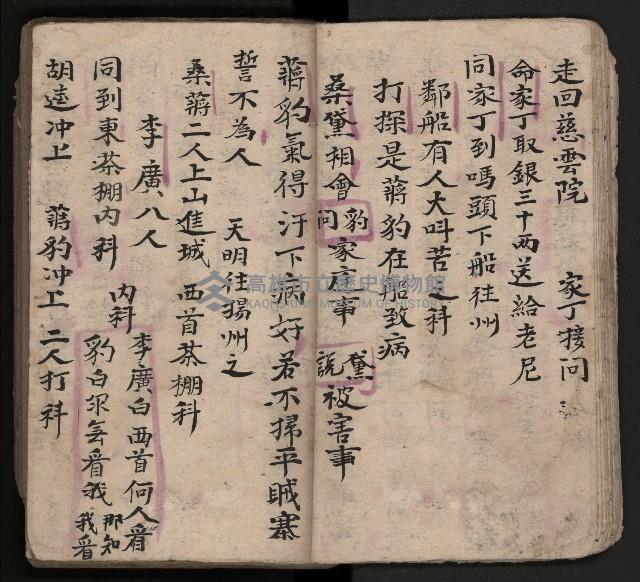 走回慈雲院　家丁接問
命家丁取銀三十兩送給老尼
同家丁到嗎頭下船往州
鄰船有人大呌苦之科
打探是蔣豹在船致病
桑黛相會豹問家庭事黛說被害事
蔣豹氣得汗下病好若不掃平賊寨
誓不為人　天明往揚州之
桑蔣二人上山進城　西首茶棚科
李廣八人
同到東茶棚內科　內科李廣白西首何人看
豹白你無看我那知我看
胡逵冲上　蔣豹冲上　二人打科
高雄市立歷史博物館
KAOHSIUNG MUSEUM OF HISTORY